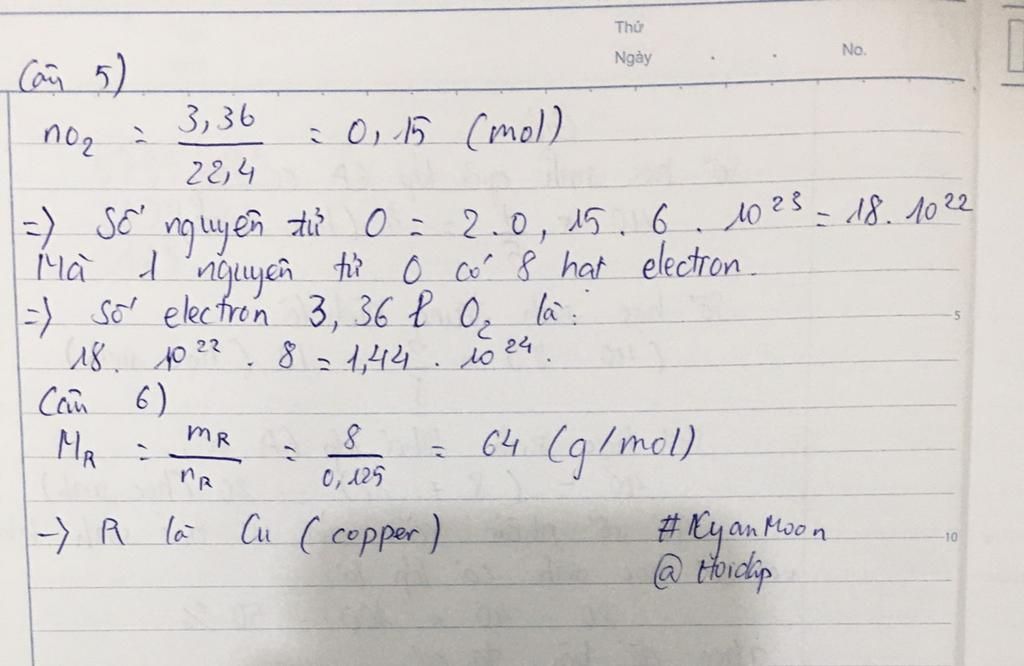 Thứ
Ngày . . No.
Câu 5)
nO₂ = 3,36 / 22,4 = 0,15 (mol)
=> Số nguyên tử O = 2.0,15.6.10²³ = 18.10²²
Mà 1 nguyên tử O có 8 hạt electron.
=> Số electron 3,36 l O₂ là:
5
18. 10²² . 8 = 1,44 . 10²⁴.
Câu 6)
M_R = m_R / n_R = 8 / 0,125 = 64 (g/mol)
-> R là Cu (copper) #KyanMoon
10
@ Hoidap